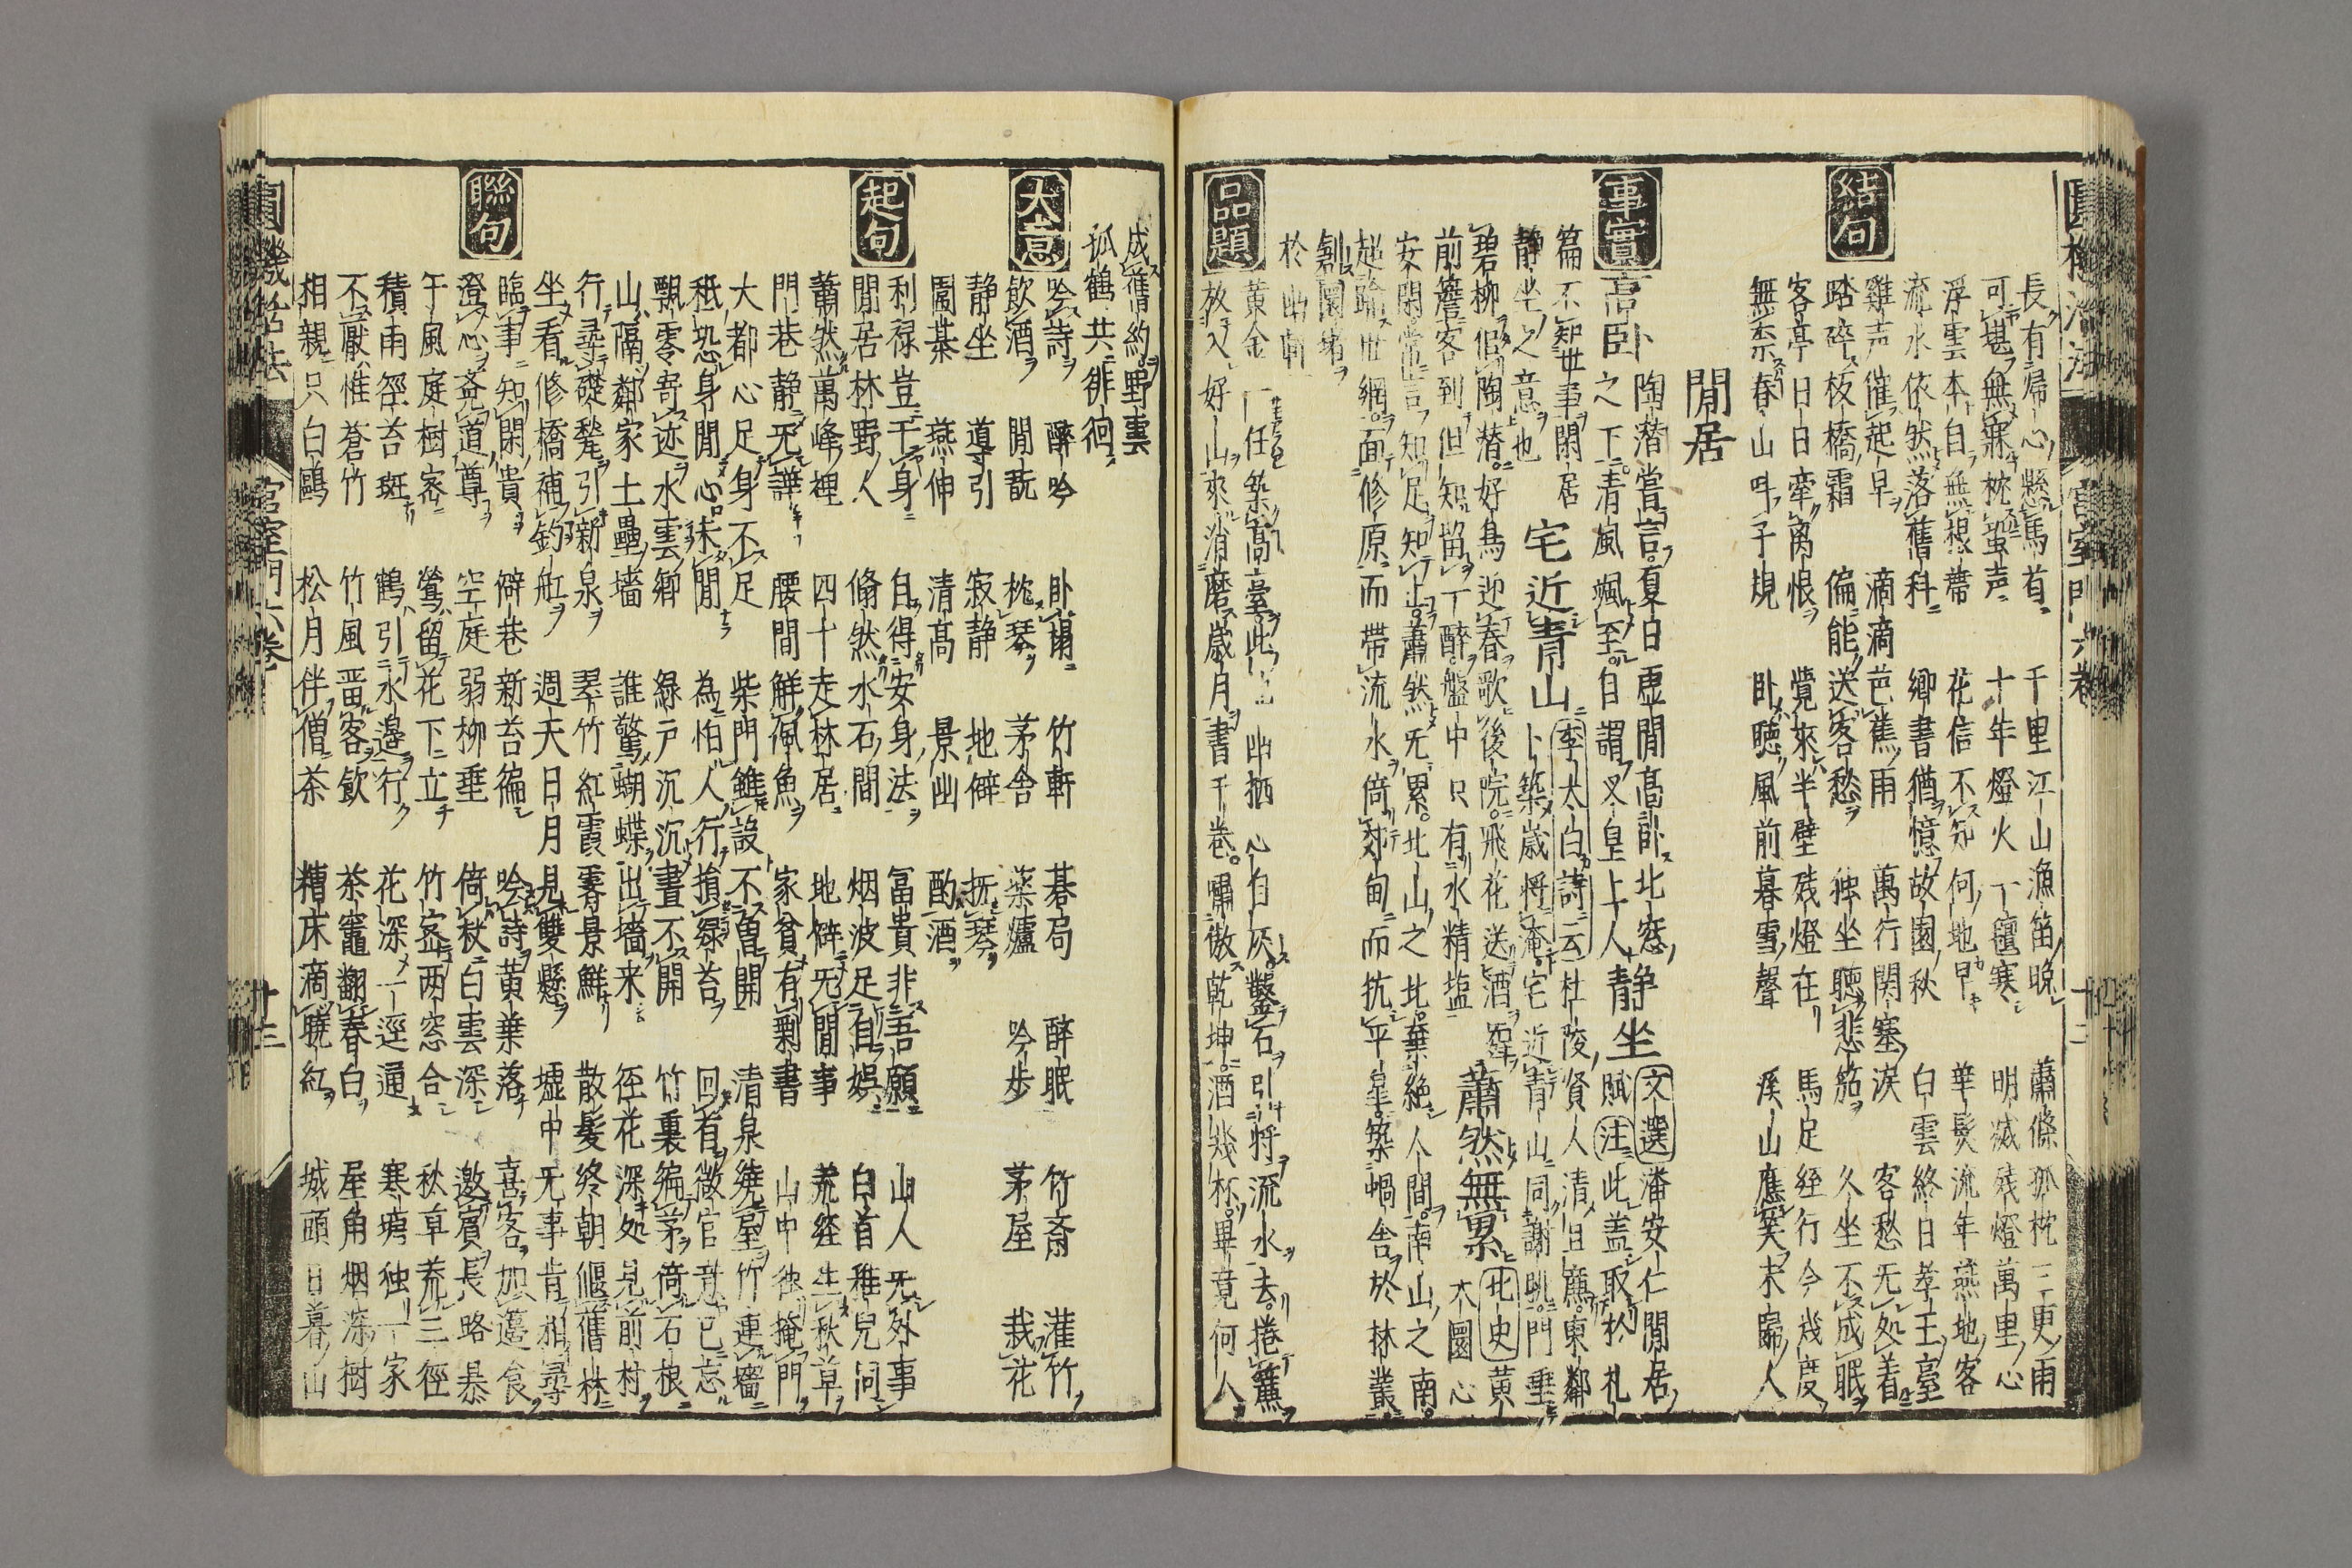 長有歸心懸馬首 千里江山漁笛晚 蕭條孤枕三更雨
可堪無寐枕蛩声 十年燈火一氊寒 明滅殘燈萬里心
浮雲本自無根蒂 花信不知何地早 華髪流年燕地客
流水依然落舊科 鄉書猶憶故園秋 白雲終日孝王臺
雞声催起早 滴滴芭蕉雨 萬行関塞淚 客愁无处着
踏碎板橋霜 偏能送客愁 独坐聴悲笳 久坐不成眠
客亭日日牽离恨 覺來半壁残燈在 馬足經行今幾度
無奈春山呌子規 卧聴風前暮雪聲 溪山應笑未歸人
結句
閒居
事實
高卧 陶潜嘗言夏日虛閒高卧北窓
之下清風颯至自謂羲皇上人
静坐 文選潘安仁閒居
賦注此盖取於札
篇不知世事閑居
静坐之意也
宅近青山 李太白詩云杜陵賢人清且廉東鄰
卜築歲將淹宅近青山同謝朓門垂
碧柳似陶潜好鳥迎春歌後院飛花送酒舞
前簷客到但知留一醉盤中只有水精塩
蕭然無累 北史黄
不圉心
安閑常言知足知止蕭然无累北山之北棄絶人間南山之南
超踰世網面修原而帶流水倚郊甸而抗平皐築蝸舍於林叢
創園緒
於幽軻
品題
黄金 一任築高臺此 幽栖心自灰鑿石引将流水去捲簾
放入好山來消磨歲月書千卷嘯傲乾坤酒幾杯畢竟何人
成舊約野雲
孤鶴共徘徊
大意
吟詩 醉吟 卧榻 竹軒 碁局 醉眠 竹斎 灌竹
飲酒 閒翫 枕琴 茅舎 薬爐 吟歩 茅屋 栽花
静坐 導引 寂静 地僻 抚琴
圍棊 燕伸 清高 景幽 酌酒
起句
利禄豈干身 自得安身法 冨貴非吾願 山人无外事
閒居林野人 翛然水石間 烟波足自娯 白首稚兒同
蕭然萬峰裡 四十走林居 地僻无閒事 荒径生秋草
門巷静无譁 腰間解佩魚 家貧有剰書 山中独掩門
大都心足身不足 柴門雖設不曽開 清泉繞屋竹連墻
秪恐身閒心未閒 為怕人行損緑苔 回有微官意已忘
飄零寄迹水雲鄉 緑戸沉沉晝不開 竹裏編茅倚石根
山隔鄰家土壘墻 誰驚蝴蝶出墻来 径花深处見前村
行尋礎甃引新泉 翠竹紅霞霽景鮮 散髪終朝偃舊林
坐看修橋補釣舡 週天日月見雙懸 墟中无事肯相尋
聯句
臨事知閑貴 僻巷新苔徧 吟詩黄葉落 喜客加邁食
澄心吝道尊 空庭弱柳垂 倚杖白雲深 邀賓長略棊
午風庭樹密 鶯留花下立 竹密两窓合 秋草荒三徑
積雨徑苔斑 鶴引水邊行 花深一逕通 寒塘独一家
不厭惟蒼竹 竹風畄客飲 茶竈翻春白 屋角烟深樹
相親只白鷗 松月伴僧茶 糟床滴暁紅 城頭日暮山
圓機活法 宮室門六卷 十三